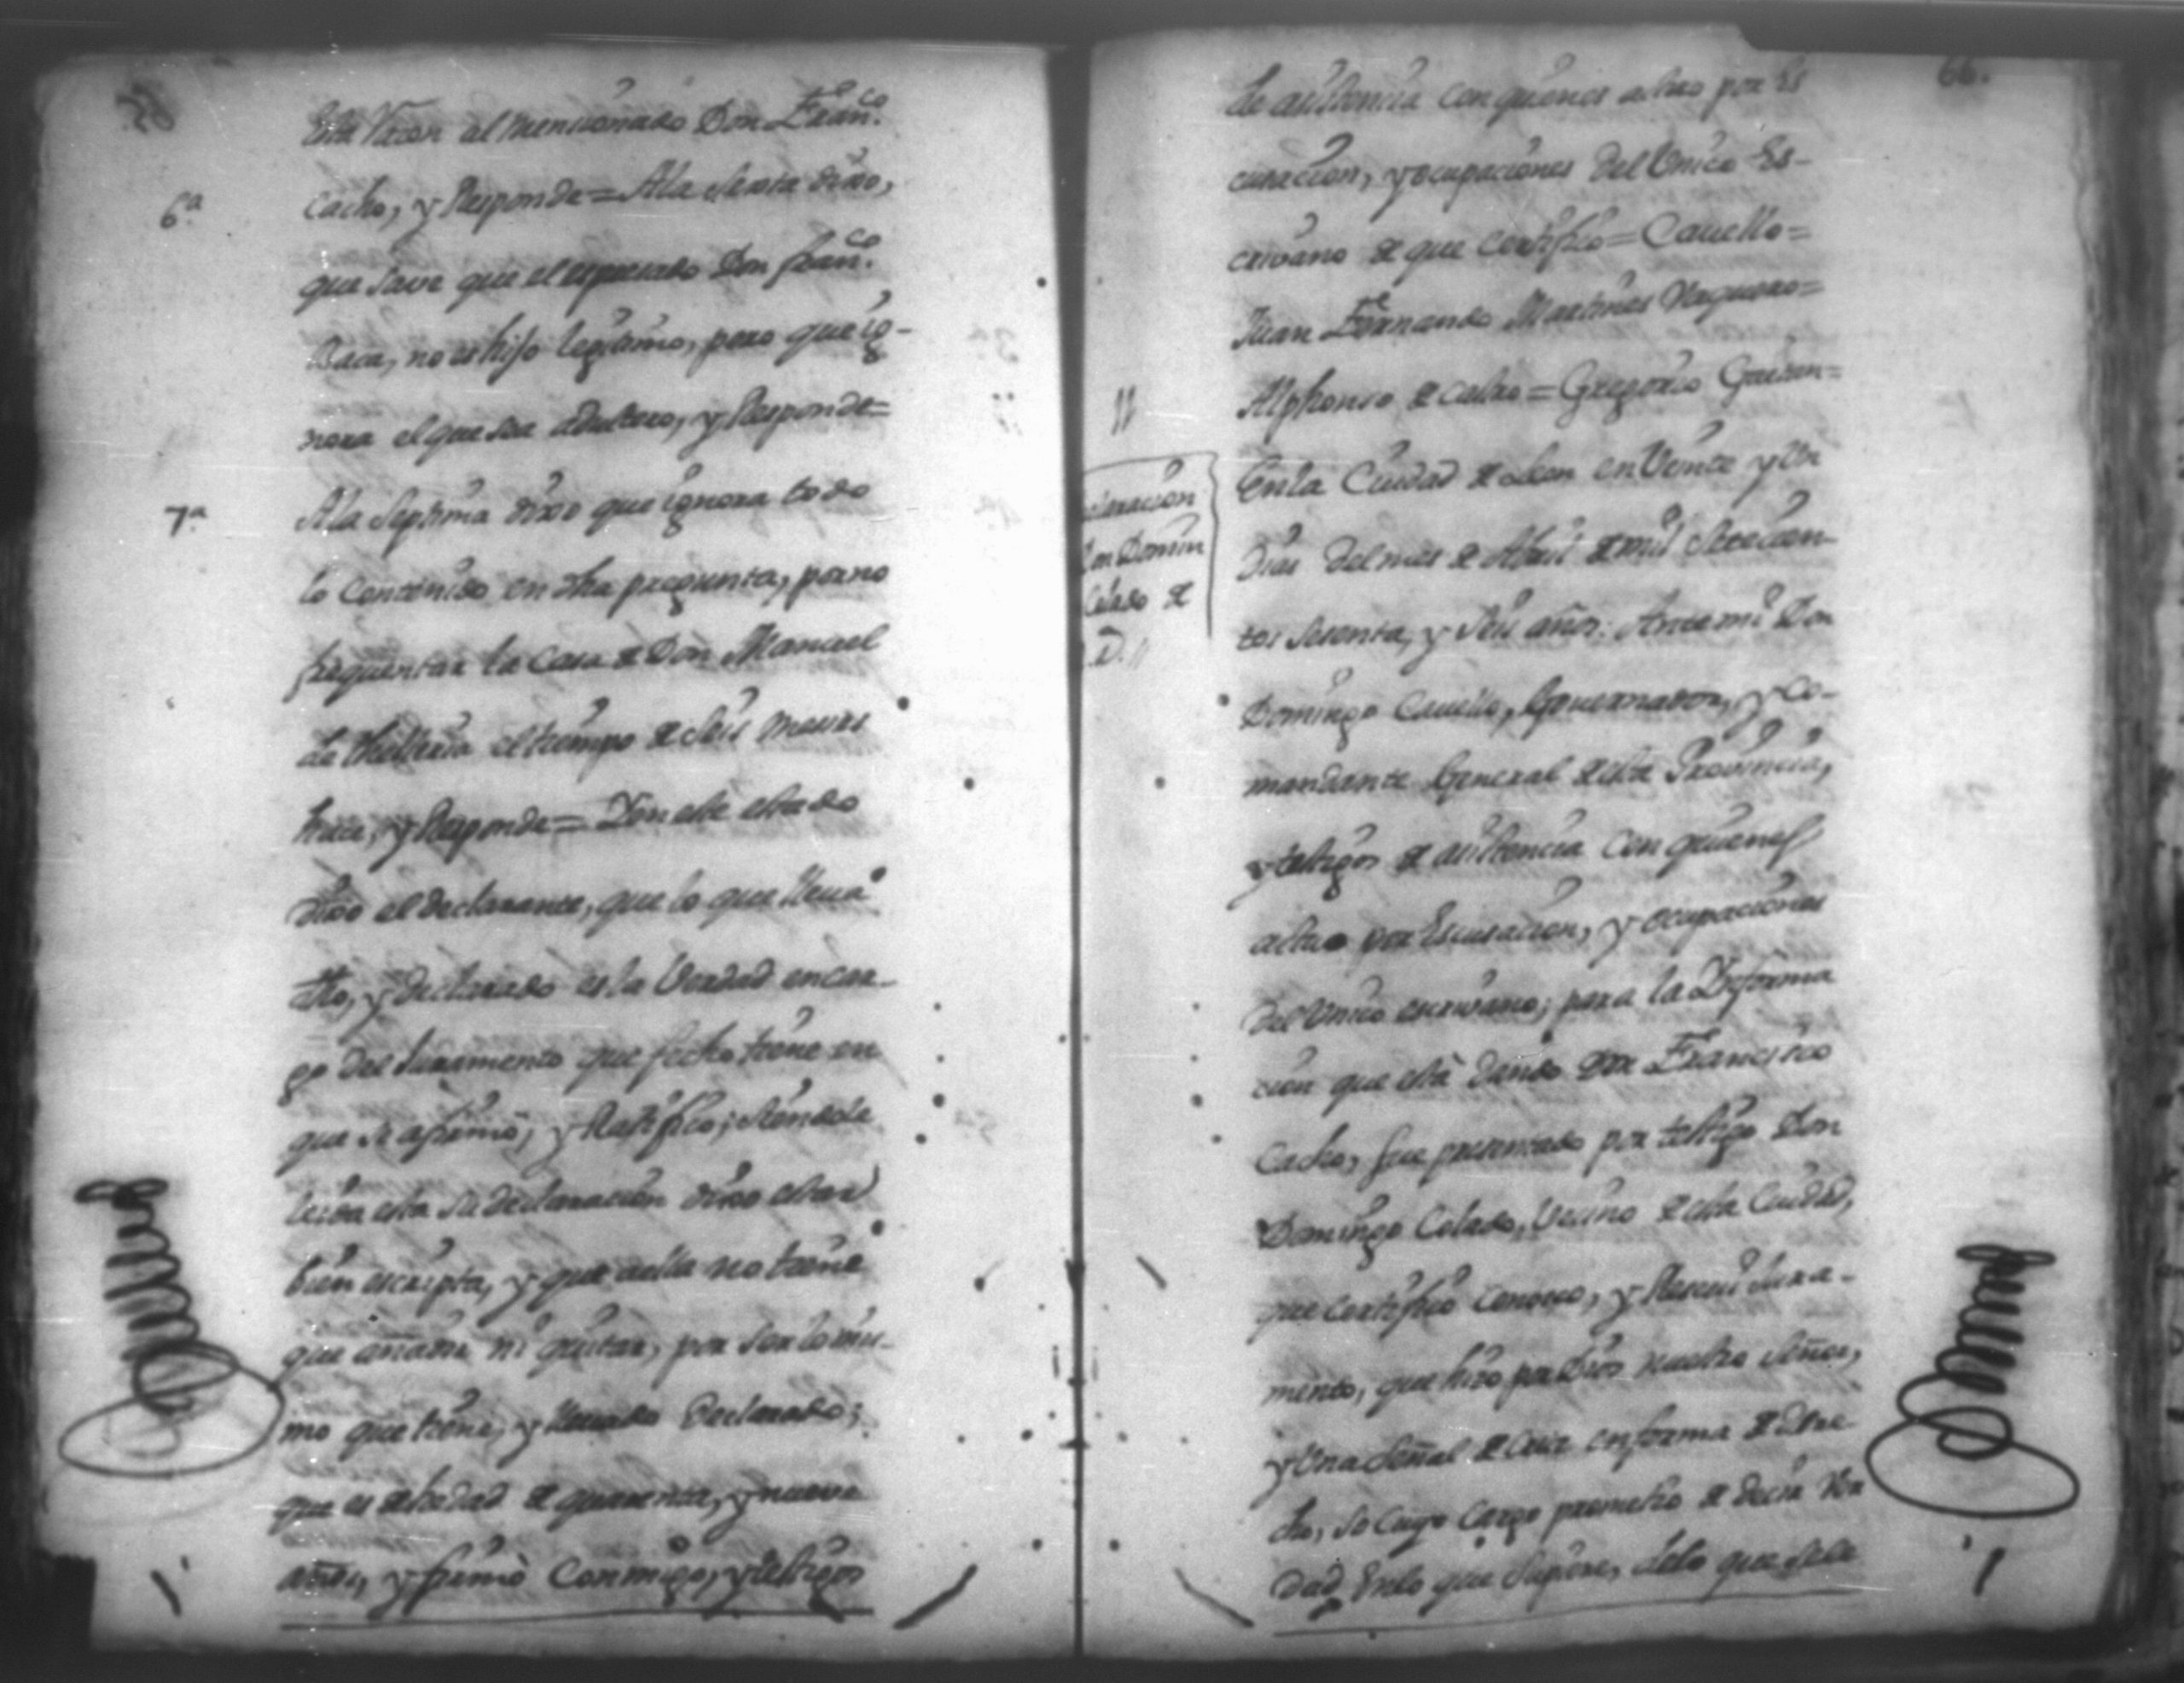 esta razon al mencionado Don Fran.co
6.a
Cacho, y Responde= Ala Sexta dixo,
que save que el expresado Don fran.co
Baca, no es hijo lexitimo, pero que ig-
nora el que sea adultero, y Responde=
7.a
Ala Septima dixo que ignora todo
lo contenido en dha pregunta, por no
frequentar la Casa de Don Manuel
de el tiempo de seis meses
hace, y Responde= En este estado
dixo el declarante, que lo que lleva
dho, y declarado es la Verdad en car-
go del Juramento que fecho tiene en
que se afirmó, y Ratificó; siendole
leida esta su declaracion dixo estar
bien escripta, y que aella no tiene
que añadir ni quitar, por ser lo mis-
mo que tiene, y llevado Declarado;
que es de hedad de quarenta, y nueve
años, y firmó Conmigo, y testigos
66.
de asistencia con quienes actuo por Es
cusacion, y ocupaciones del Unico Es-
crivano de que Certifico= Cauello=
Juan Fernando Martines Vaquero=
Alphonso de Castro= Gregorio
En la Ciudad de Leon en Veinte y Un
dias del mes de Abril de mil Setecien-
tos Sesenta, y Seis años: Ante mi Don
Domingo Cauello, Governador, y Co-
mandante General de esta Provincia,
y testigos de asistencia con quienes
actuo por Escusacion, y ocupaciones
del Unico escrivano; para la Informa
cion que está dando Don Francisco
Cacho, fue presentado por testigo Don
Domingo Colado, Vecino de esta Ciudad,
que certifico conosco, y Reseví Jura-
mento, que hizo por Dios nuestro Señor,
y Una Señal de Cruz en forma de dere
cho, so Cuyo Cargo prometio de decir Ver
dad En lo que Supiere, delo que sele
claracion
Don Domin
Colado de
D.